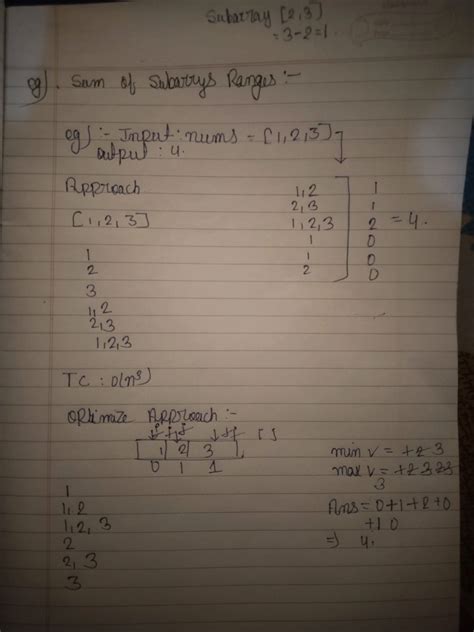 Subarray [2,3]
= 3-2=1.
eg). Sum of Subarrys Ranges:-
eg) :- Input: nums = [1,2,3]
Output : 4.
Approach
[1,2,3]
1
2
3
1,2
2,3
1,2,3
1,2 1
2,3 1
1,2,3 2 = 4.
1 0
1 0
2 0
TC : O(n³)
Optimize Approach:-
1 2 3
0 1 1
1
1,2
1,2,3
2
2,3
3
min v =
max v =
3
Ans = 0+1+2+0
+1 0
=> 4.